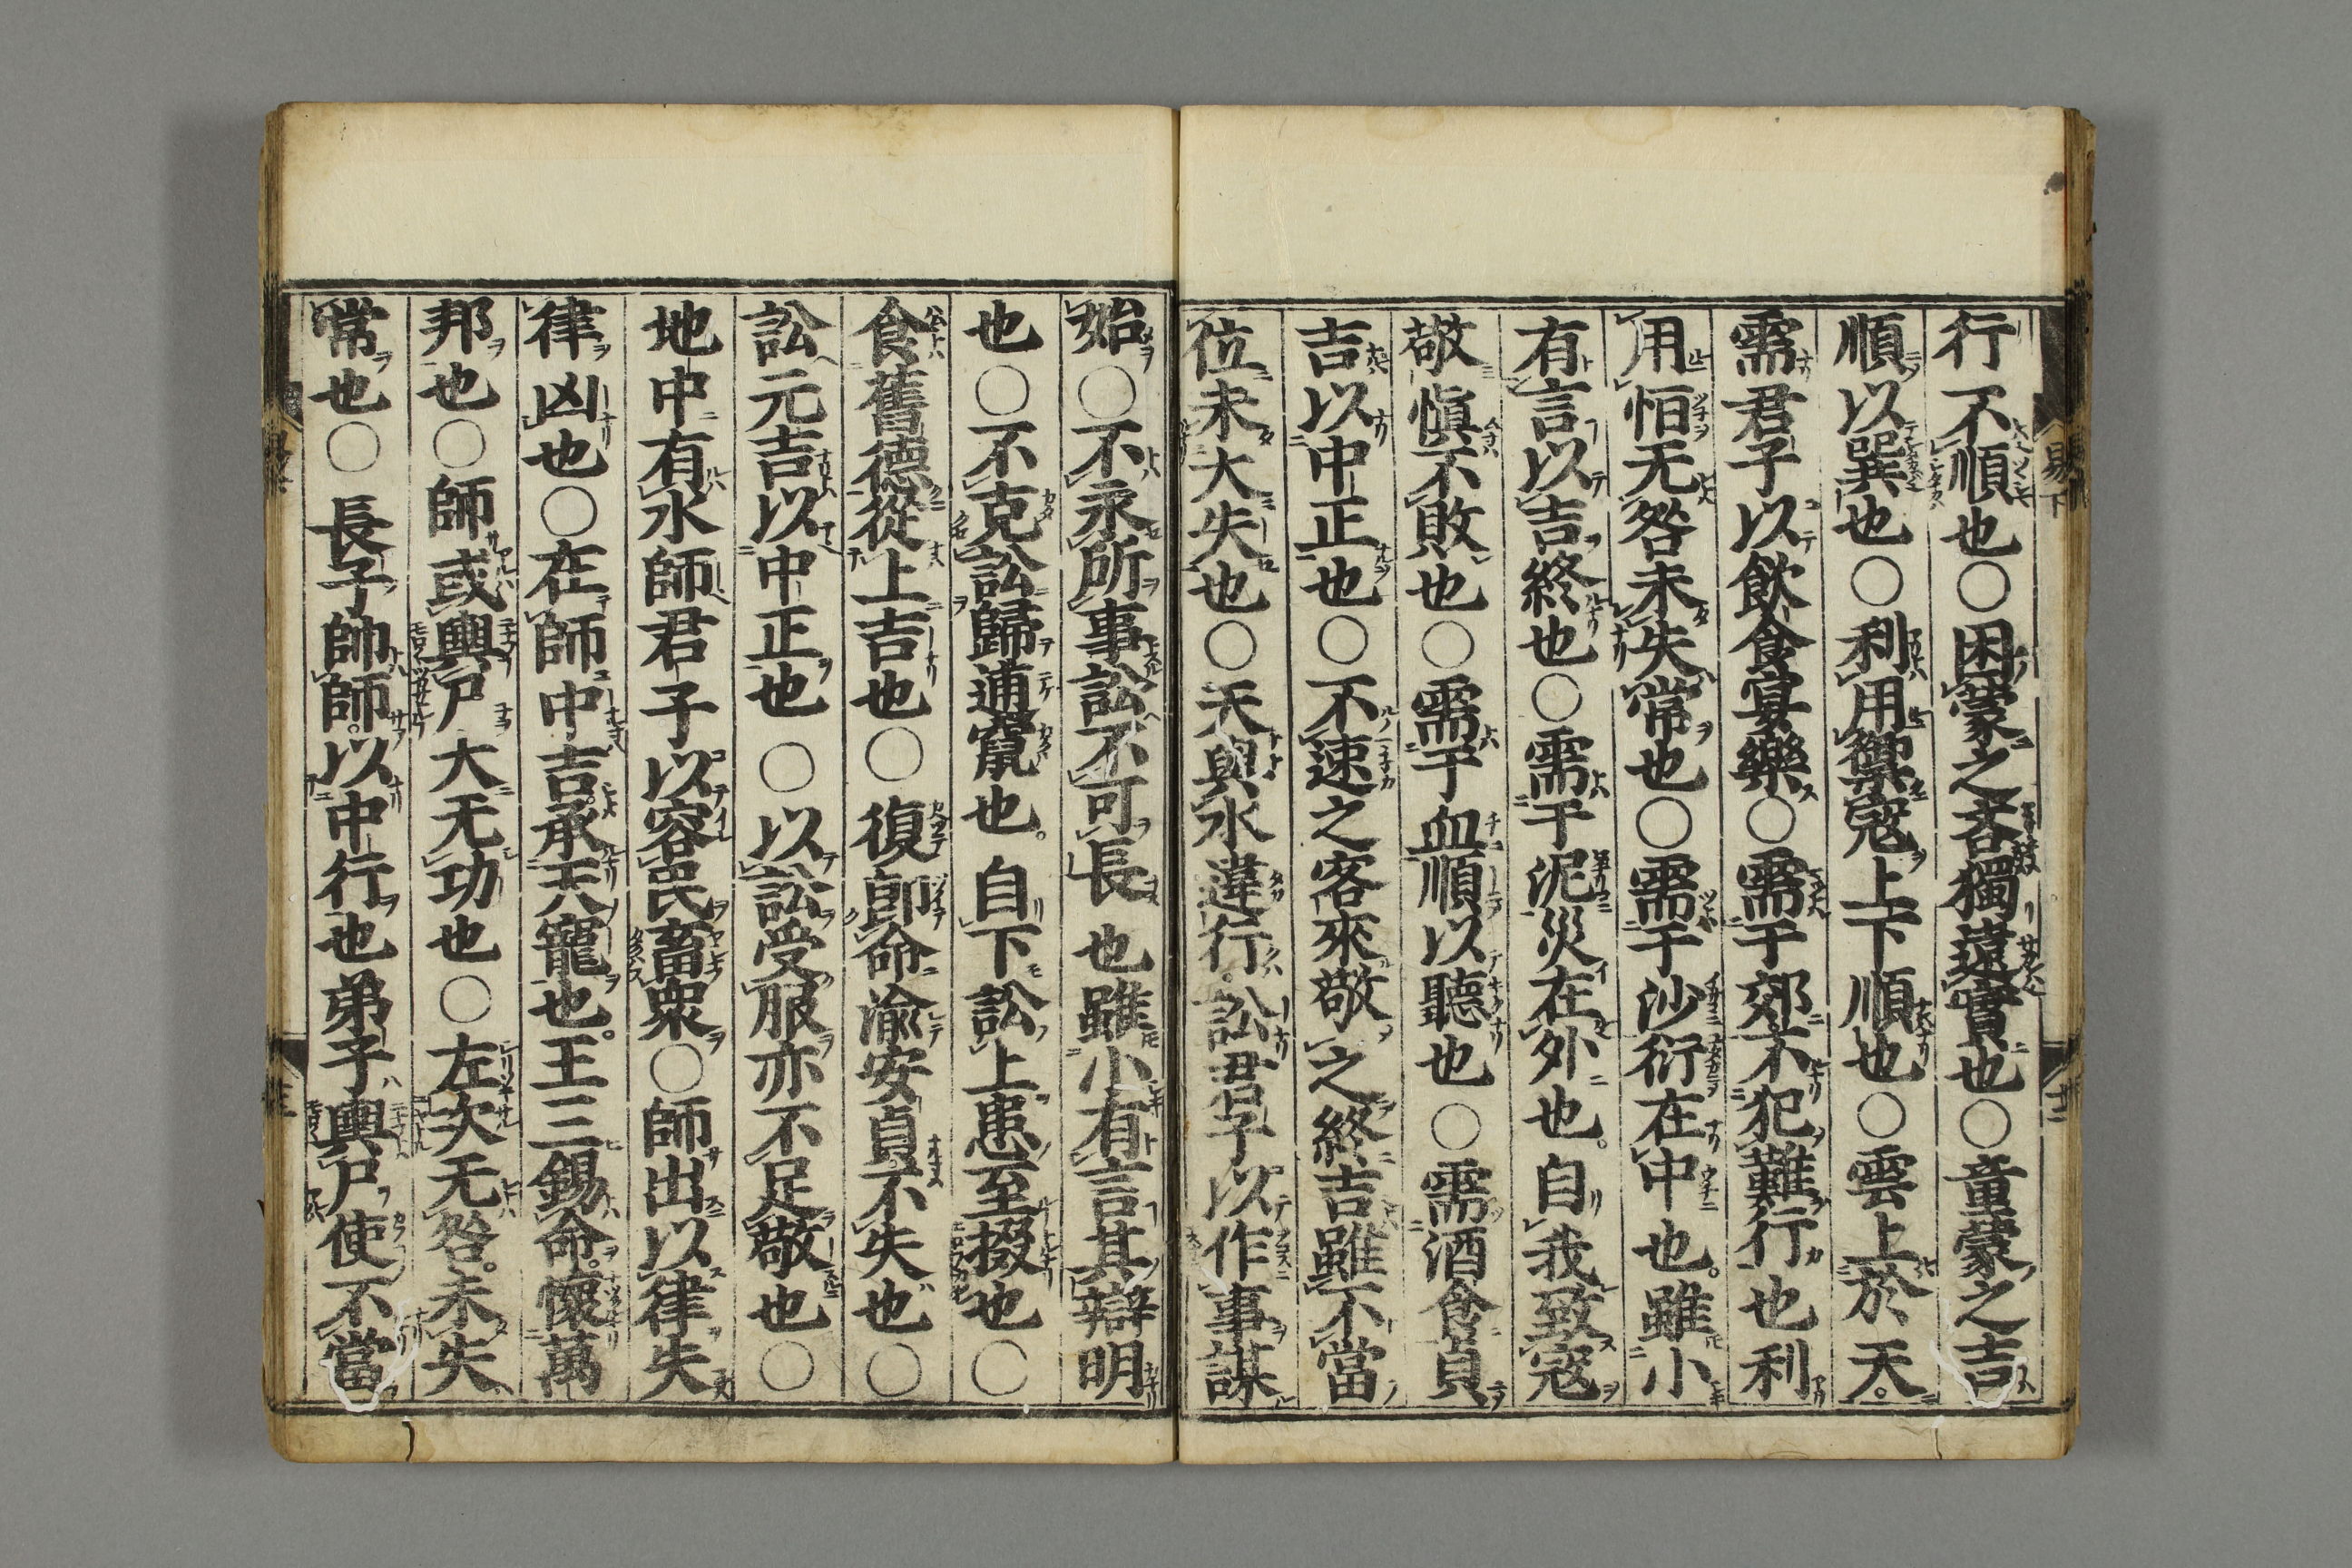 行不順也○困蒙之吝獨遠實也○童蒙之吉
順以巽也○利用禦寇上下順也○雲上於天。
需君子以飲食宴樂○需于郊不犯難行也利
用恒无咎未失常也○需于沙衍在中也。雖小
有言以吉終也○需于泥災在外也。自我致寇
敬愼不敗也○需于血順以聽也○需酒食貞
吉以中正也○不速之客來敬之終吉雖不當
位未大失也○天與水違行。訟君子以作事謀
始○不永所事訟不可長也雖小有言其辯明
也○不克訟歸逋竄也。自下訟上患至掇也○
食舊德從上吉也○復卽命渝安貞不失也○
訟元吉以中正也○以訟受服亦不足敬也○
地中有水師君子以容民畜衆○師出以律失
律凶也○在師中吉。承天寵也。王三錫命。懷萬
邦也○師或輿尸大无功也○左次无咎。未失
常也○長子帥師。以中行也弟子輿尸使不當